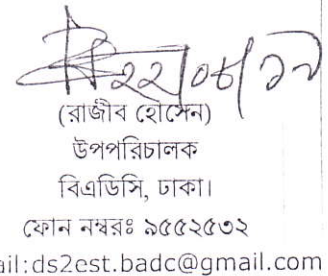 ২২/০৮/১৭
(রাজীব হোসেন)
উপপরিচালক
বিএডিসি, ঢাকা।
ফোন নম্বরঃ ৯৫৫২৫৩২
ail:ds2est.badc@gmail.com